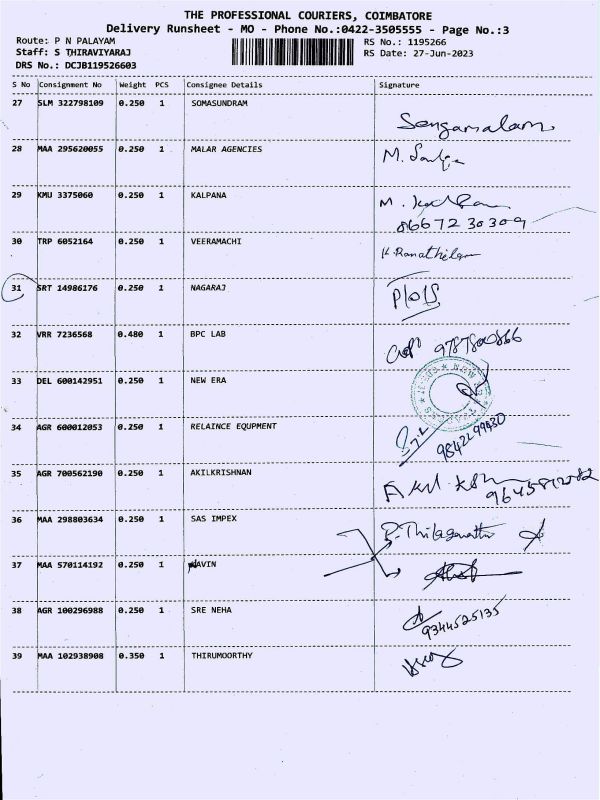 THE PROFESSIONAL COURIERS, COIMBATORE
Delivery Runsheet - MO - Phone No.:0422-3505555 - Page No.:3
Route: P N PALAYAM RS No.: 1195266
Staff: S THIRAVIYARAJ RS Date: 27-Jun-2023
DRS No.: DCJB119526603
S No Consignment No Weight PCS Consignee Details Signature
27 SLM 322798109 0.250 1 SOMASUNDRAM
Sengamalam
28 MAA 295620055 0.250 1 MALAR AGENCIES M.
29 KMU 3375060 0.250 1 KALPANA M.
8667230309
30 TRP 6052164 0.250 1 VEERAMACHI
31 SRT 14986176 0.250 1 NAGARAJ
32 VRR 7236568 0.480 1 BPC LAB
33 DEL 600142951 0.250 1 NEW ERA
34 AGR 600012053 0.250 1 RELAINCE EQUPMENT
35 AGR 700562190 0.250 1 AKILKRISHNAN
36 MAA 298803634 0.250 1 SAS IMPEX
37 MAA 570114192 0.250 1 NAVIN
38 AGR 100296988 0.250 1 SRE NEHA
9344525135
39 MAA 102938908 0.350 1 THIRUMOORTHY